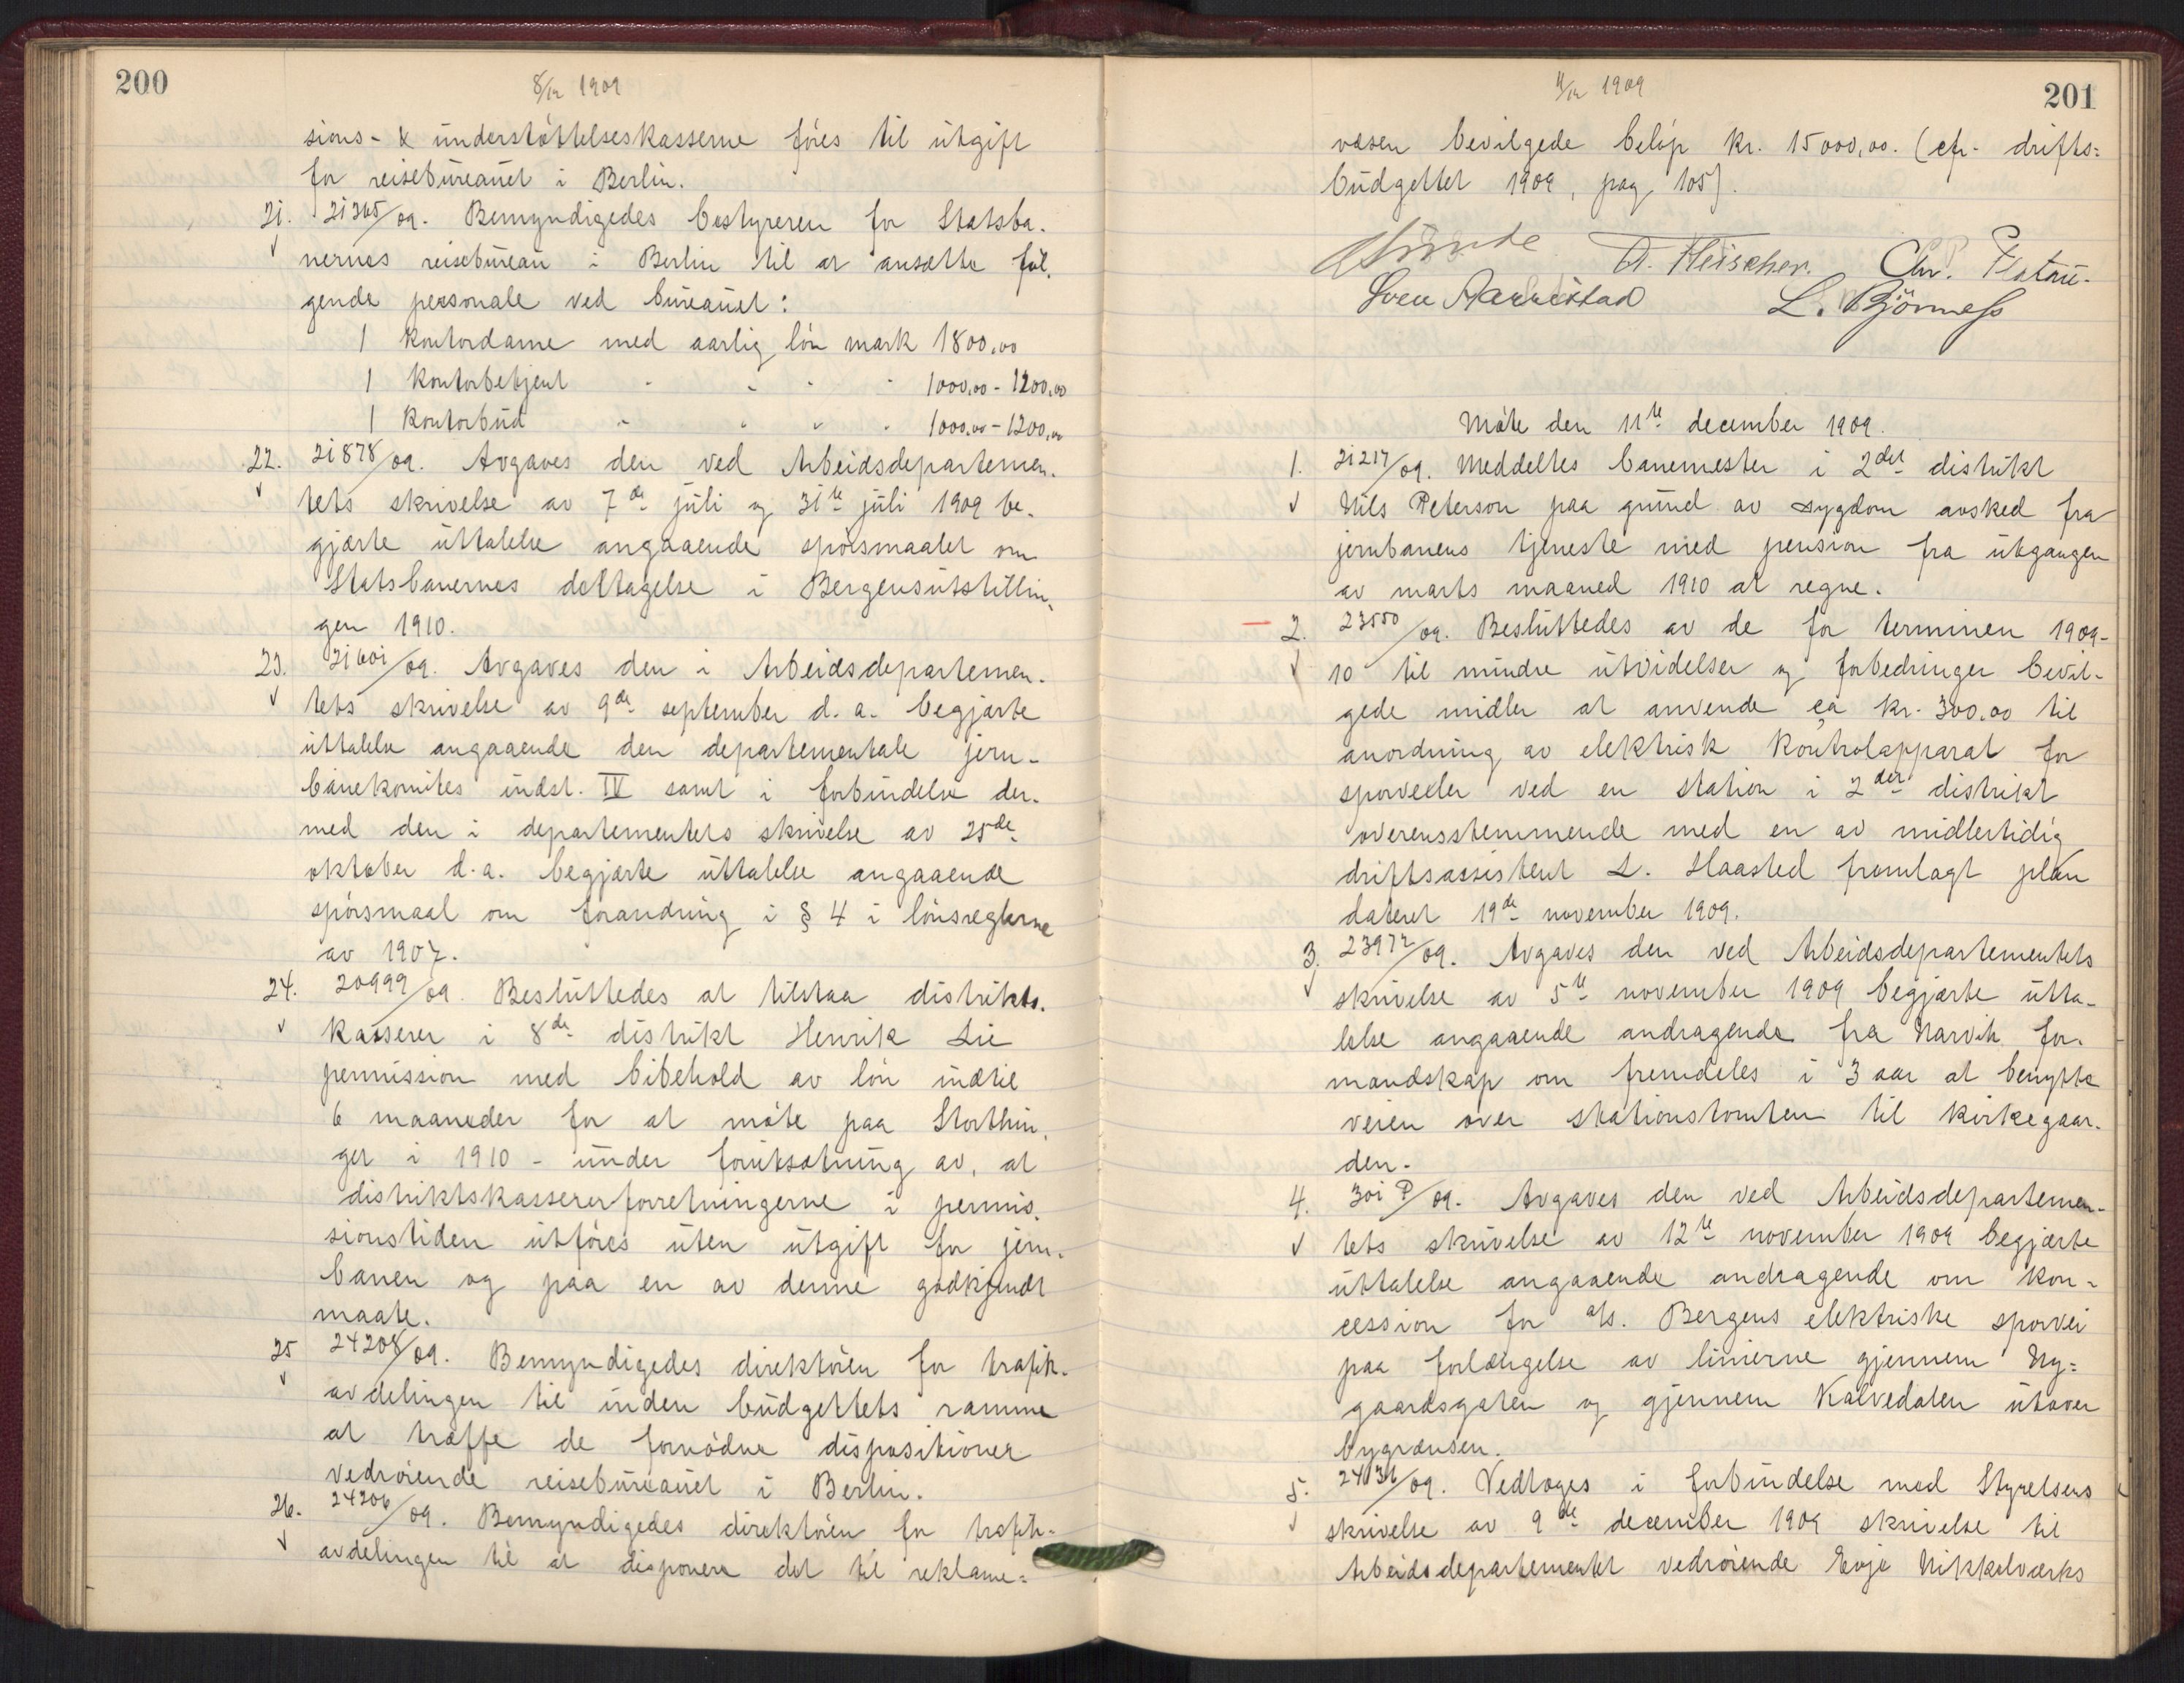 200
8/12 1909
sions- & understøttelseskasserne føres til utgift
for reisebureauet i Berlin.
21. 21365/09. Bemyndigedes bestyreren for Statsba-
nernes reisebureau i Berlin til at ansætte føl-
gende personale ved bureauet:
1 kontordame med aarlig løn mark 1800,00
1 kontorbetjent " " " " 1000,00 - 1200,00
1 kontorbud " " " " 1000,00 - 1200,00
22. 21878/09. Avgaves den ved Arbeidsdepartemen-
tets skrivelse av 7de juli og 31te juli 1909 be-
gjærte uttalelse angaaende spørsmaalet om
Statsbanernes deltagelse i Bergensutstillin-
gen 1910.
23. 21601/09. Avgaves den i Arbeidsdepartemen-
tets skrivelse av 9de september d.a. begjærte
uttalelse angaaende den departementale jern-
banekomites indst. IV samt i forbindelse der-
med den i departementets skrivelse av 25de
oktober d.a. begjærte uttalelse angaaende
spørsmaal om forandring i § 4 i lønsreglerne
av 1907.
24. 20999/09. Besluttedes at tilstaa distrikts-
kasserer i 8de distrikt Henrik Lie
permission med bibehold av løn indtil
6 maaneder for at møte paa Storthin-
get i 1910 - under forutsætning av, at
distriktskassererforretningerne i permis-
sionstiden utføres uten utgift for jern-
banen og paa en av denne godkjendt
maate.
25 24208/09. Bemyndigedes direktøren for trafik-
avdelingen til inden budgettets ramme
at træffe de fornødne dispositioner
vedrørende reisebureauet i Berlin.
26. 24206/09. Bemyndigedes direktøren for trafik-
avdelingen til at disponere det til reklame-
11/12 1909
201
væsen bevilgede beløp kr. 15000,00. (cfr. drifts-
budgettet 1909, pag. 105).
A. Fleischer. Chr. Platou.
Sven Aarrestad L. Bjørness
Møte den 11te december 1909.
1. 21217/09. Meddeltes banemester i 2det distrikt
Nils Peterson paa grund av sygdom avsked fra
jernbanens tjeneste med pension fra utgangen
av marts maaned 1910 at regne.
2. 23550/09. Besluttedes av de for terminen 1909-
10 til mindre utvidelser og forbedringer bevil-
gede midler at anvende ca kr. 300,00 til
anordning av elektrisk kontrolapparat for
sporveksler ved en station i 2det distrikt
overensstemmende med en av midlertidig
driftsassistent L. Haasted fremlagt plan
dateret 19de november 1909.
3. 23972/09. Avgaves den ved Arbeidsdepartementets
skrivelse av 5te november 1909 begjærte utta-
lelse angaaende andragende fra Narvik for-
mandskap om fremdeles i 3 aar at benytte
veien over stationstomten til kirkegaar-
den.
4. 301 P/09. Avgaves den ved Arbeidsdepartemen-
tets skrivelse av 12te november 1909 begjærte
uttalelse angaaende andragende om kon-
cession for a/s. Bergens elektriske sporvei
paa forlængelse av linierne gjennem Ny-
gaardsgaten og gjennem Kalvedalen utover
bygrænsen.
5. 24136/09. Vedtoges i forbindelse med Styrelsens
skrivelse av 9de december 1909 skrivelse til
Arbeidsdepartementet vedrørende Evje Nikkelværks